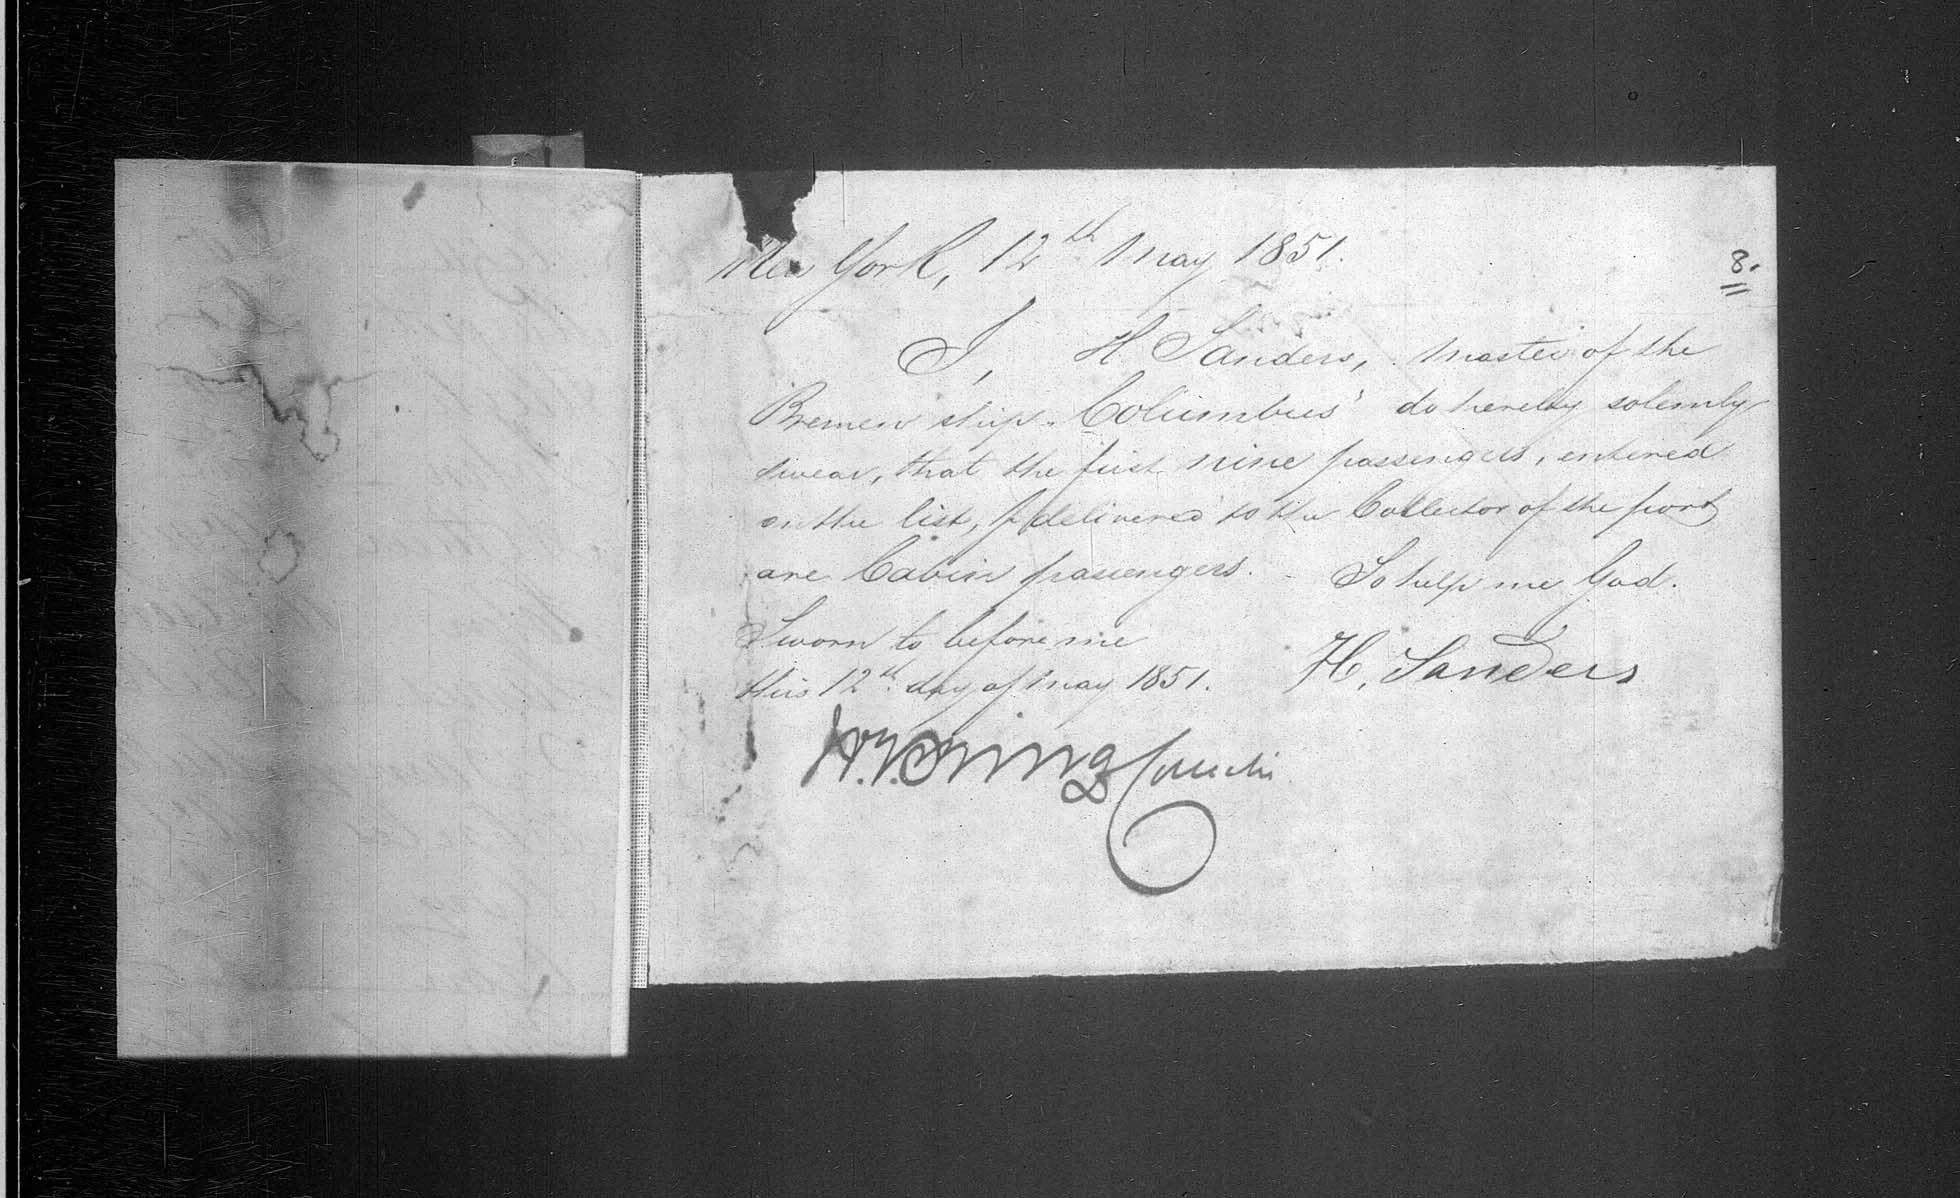 New York, 12th May 1851.
8.
I, H Sanders, master of the
Bremen ship "Columbus" do hereby solemnly
swear, that the first nine passengers, entered
on the list, I delivered to the Collector of the port
are Cabin passengers. So help me God.
Sworn to before me
this 12th day of May 1851.
H. Sanders